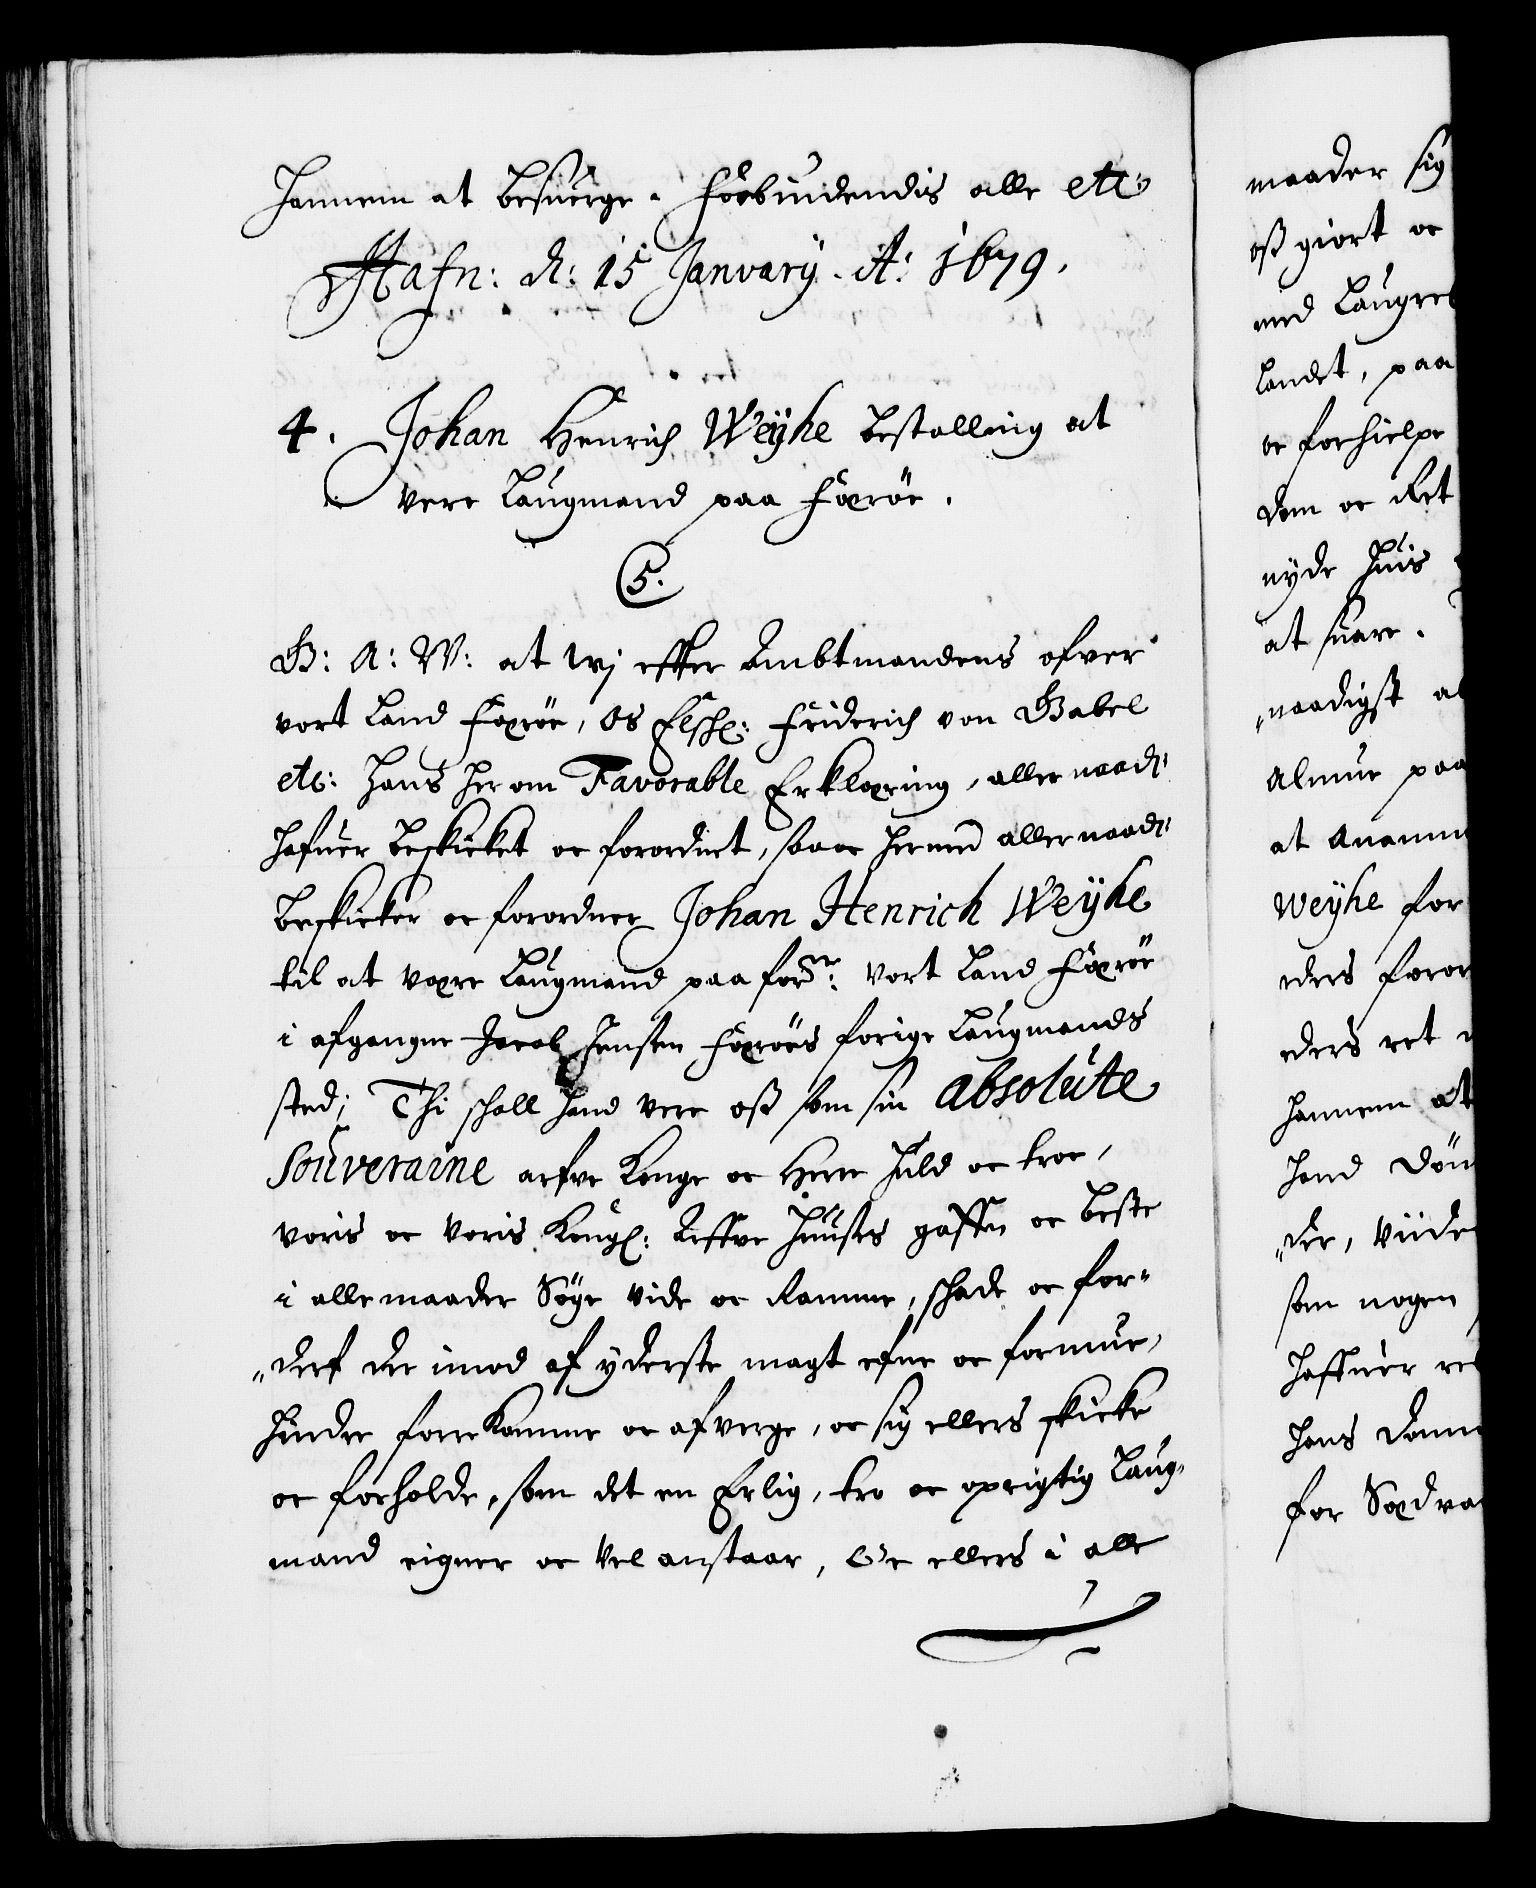 hannem at besuerge. Forbiudendis alle etc:
Hafn: d: 15 January. A: 1679.
4. Johan Henrich Weÿhe bestalling at
vere Laugmand paa Færöe.
C5.
G: A: W: at wj effter Ambtmandens ofver
vort Land Færöe, Os Elschel: Friderich von Gabel
etc: hans her om Favorable Erklæring, allernaadt:
hafuer beskicket oc forordnet, saa oc hermed allernaadt:
beskicker oc forordner Johan Henrich Weÿhe
til at være Laugmand paa forne: vort Land Færöe
i afgangne Jacob Jensen Færöes forige Laugmands
sted; Thi schall hand vere oß som sin absolute
Souveraine arfve Konge oc Herre huld oc troe,
voris oc voris Kongl: Arffve Huuses gaffn oc beste
i alle maader Söge vide oc Ramme, schade oc for-
„derf der imod af yderste magt efne oc formue,
hindre forrekomme oc afverge, oc sig ellers skicke
oc forholde, som det en Erlig, tro oc oprigtig Laug-
mand eigner oc vel anstaar, Oc ellers i alle
maader sig
oß giort oc
med Laugret
Landet, paa
oc forhielpe
dom oc Ret
nyde huis
at suare.
„naadigst al
Almue paa
at anamm
Weÿhe for
eders foror
eders ret
hannem at
hand döm
„der, viide
som nogen
haffuer re
hans domm
for Sædva